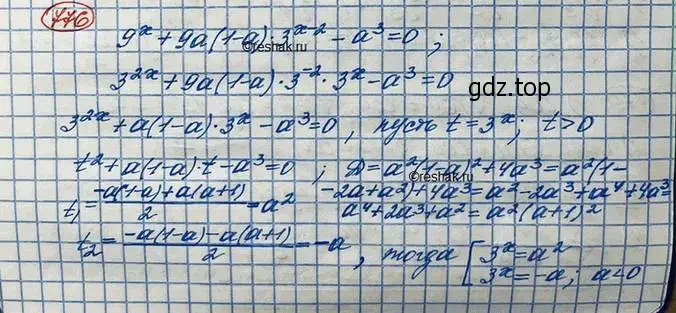 776
9^x + 9a(1-a)·3^{x-2} - a^3 = 0 ;
©reshak.ru
3^{2x} + 9a(1-a)·3^{-2}·3^x - a^3 = 0
gdz.top
3^{2x} + a(1-a)·3^x - a^3 = 0 , пусть t = 3^x ; t>0
t^2 + a(1-a)·t - a^3 = 0 ; D = a^2(1-a)^2 + 4a^3 = a^2(1-
©reshak.ru
-2a+a^2) + 4a^3 = a^2 - 2a^3 + a^4 + 4a^3 =
t_1 = \frac{-a(1-a)+a(a+1)}{2} = a^2
a^4 + 2a^3 + a^2 = a^2(a+1)^2
t_2 = \frac{-a(1-a)-a(a+1)}{2} = -a , тогда [ 3^x = a^2
3^x = -a ; a<0